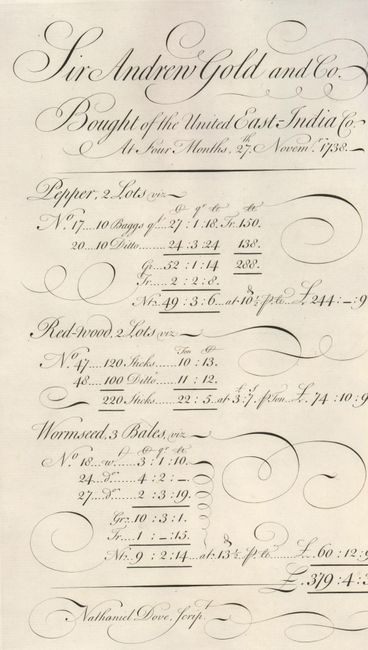 Sir Andrew Gold and Co.
Bought of the United East-India Co.
At Four Months, 27th Novemr. 1738.
Pepper, 2 Lots viz
C qrs lb lb
No. 17....10 Baggs qt. 27 : 1 : 18. Tr. 150.
20....10 Ditto........24 : 3 : 24 138.
Gr. 52 : 1 : 14 288.
Tr. 2 : 2 : 8.
Nt. 49 : 3 : 6. at 10½ p. lb. £. 244 : – : 9
Red-wood, 2 Lots viz
Ton C
No. 47......120 Sticks......10 : 13.
48......100 Ditto......11 : 12.
220 Sticks......22 : 5. at 3 : 7. p. Ton £. 74 : 10 : 9
Wormseed, 3 Bales, viz
C qrs lb
No. 18 3 : 1 : 10.
24 do. 4 : 2 : –.
27 do. 2 : 3 : 19.
Gr. 10 : 3 : 1.
Tr. 1 : – : 15.
Nt. 9 : 2 : 14 at 13½ p. lb. £. 60 : 12 : 9
£. 379 : 4 : 3
Nathaniel Dove, Scrip.t